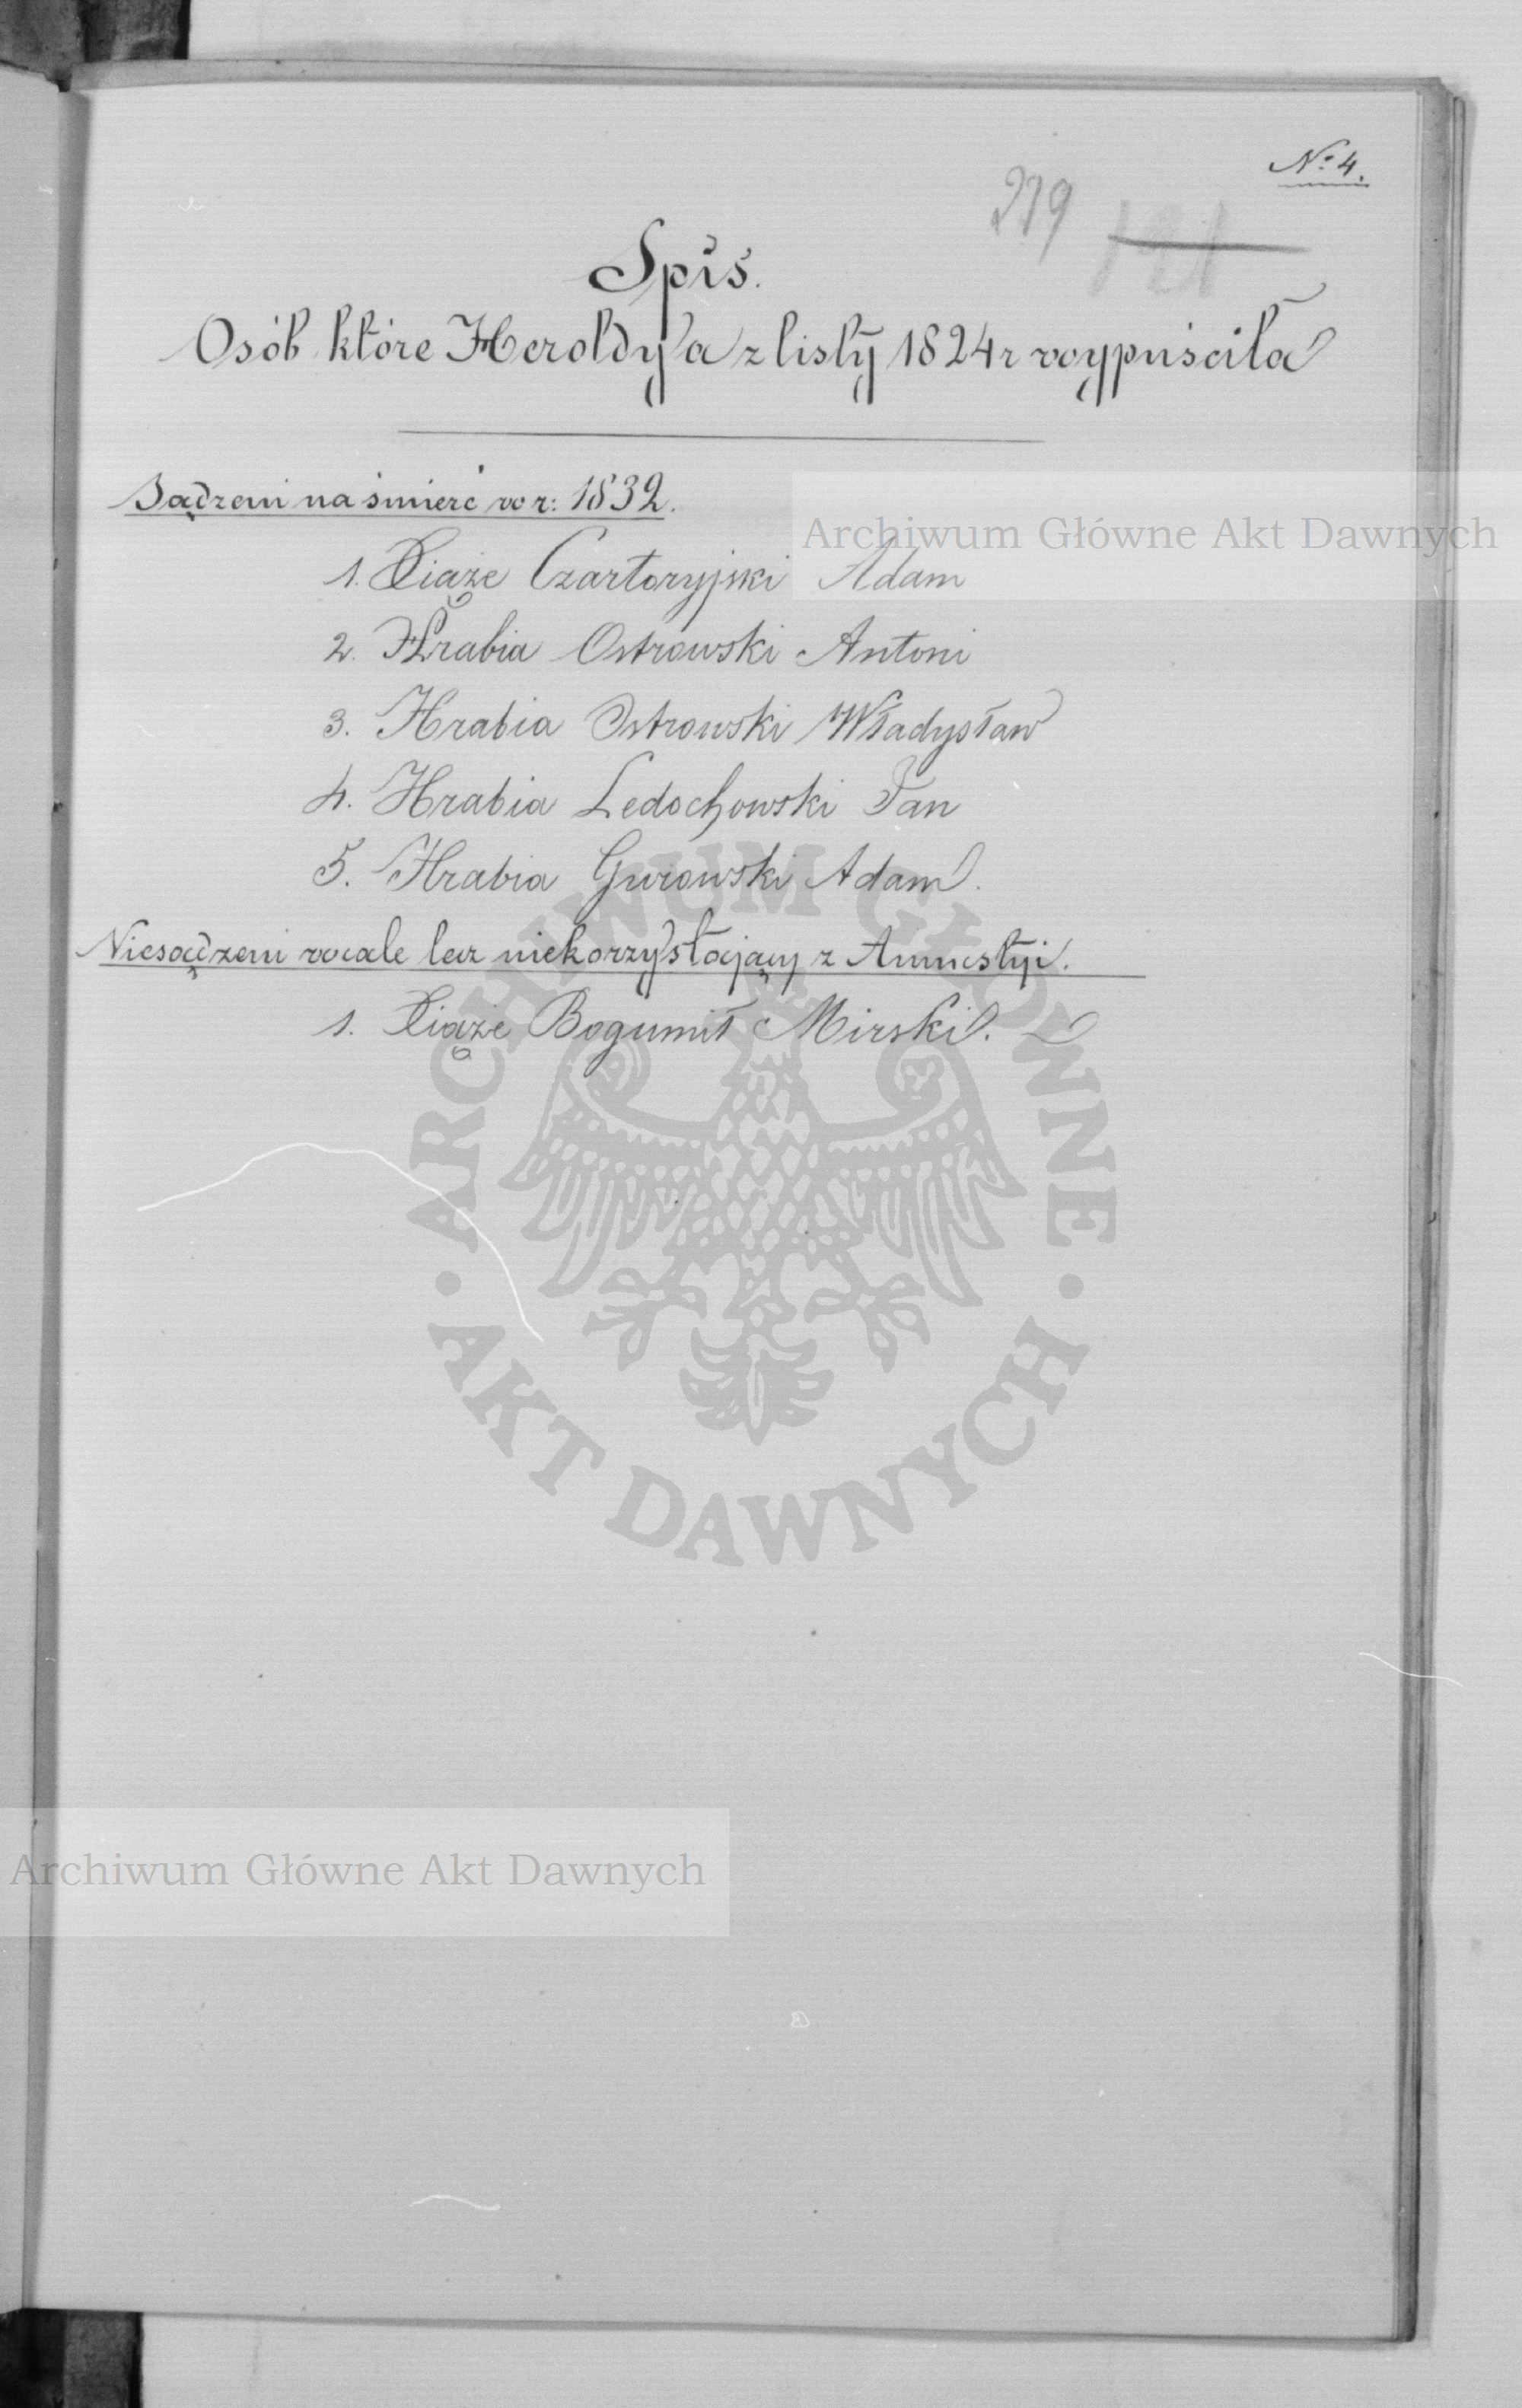 No 4.
279
121
Spis.
Osób które Heroldya z listy 1824 r wypuściła
Sądzeni na śmierć w r: 1832.
1. Xiąże Czartoryjski Adam
Archiwum Główne Akt Dawnych
2. Hrabia Ostrowski Antoni
3. Hrabia Ostrowski Władysław
4. Hrabia Ledochowski Jan
5. Hrabia Gurowski Adam.
Niesądzeni wcale lecz niekorzystający z Amnestyi.
1. Xiąże Bogumił Mirski.
ARCHIWUM GŁÓWNE AKT DAWNYCH
Archiwum Główne Akt Dawnych